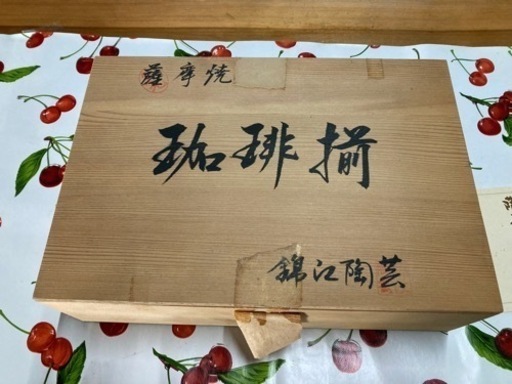 薩摩焼
珈琲揃
錦江陶芸